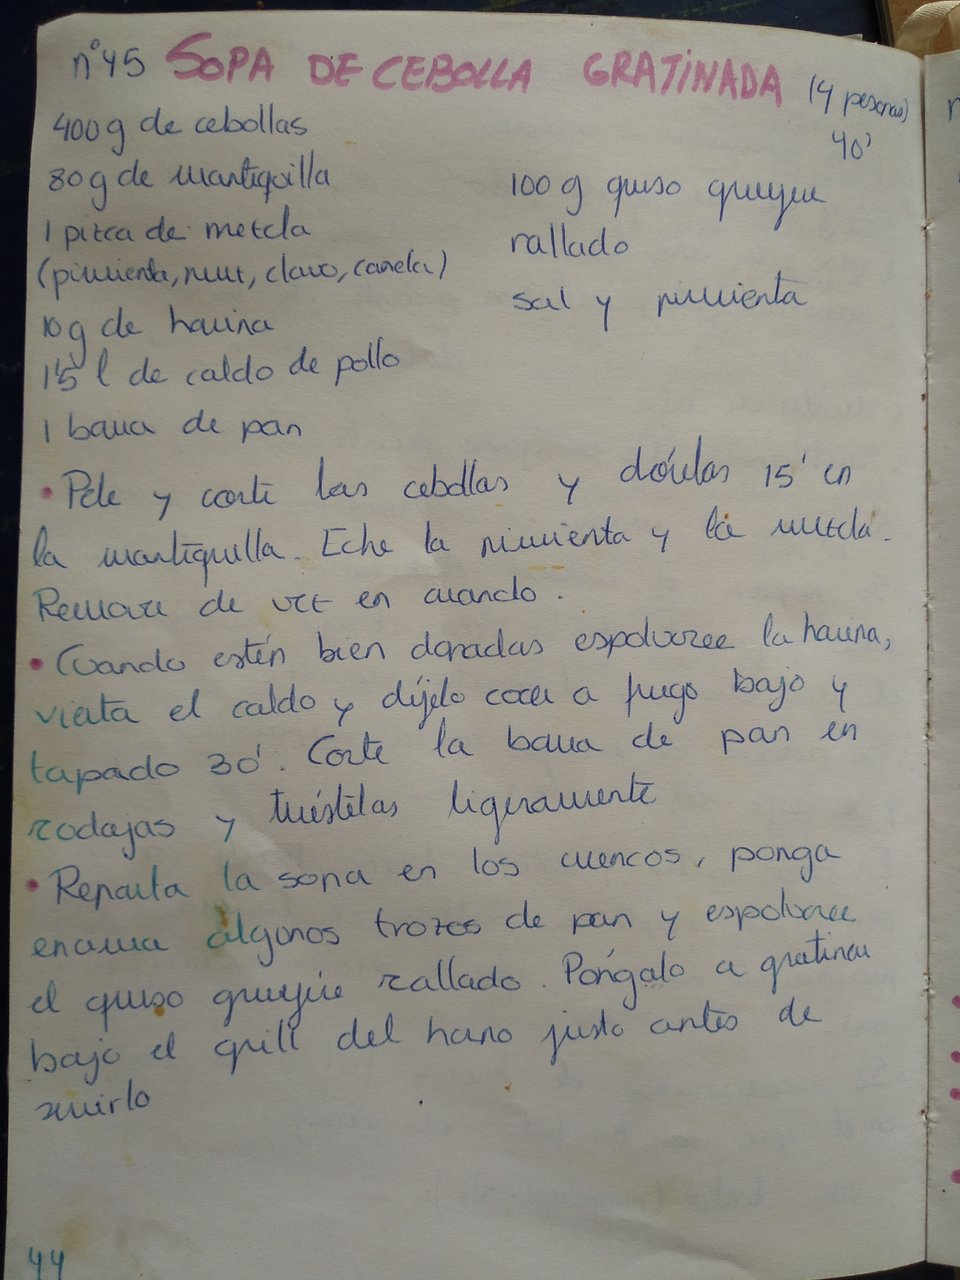 nº45 SOPA DE CEBOLLA GRATINADA (4 personas)
40'
400g de cebollas
80g de mantequilla
1 pizca de mezcla
(pimienta, nuez, clavo, canela)
10g de harina
1'5 l de caldo de pollo
1 barra de pan
100g queso gruyere
rallado
sal y pimienta
• Pele y corte las cebollas y dórelas 15' en
la mantequilla. Eche la pimienta y la mezcla.
Remover de vez en cuando.
• Cuando estén bien doradas espolvoree la harina,
vierta el caldo y déjelo cocer a fuego bajo y
tapado 30'. Corte la barra de pan en
rodajas y tuéstelas ligeramente
• Reparta la sopa en los cuencos, ponga
encima algunos trozos de pan y espolvoree
el queso gruyère rallado. Póngalo a gratinar
bajo el grill del horno justo antes de
servirlo
44